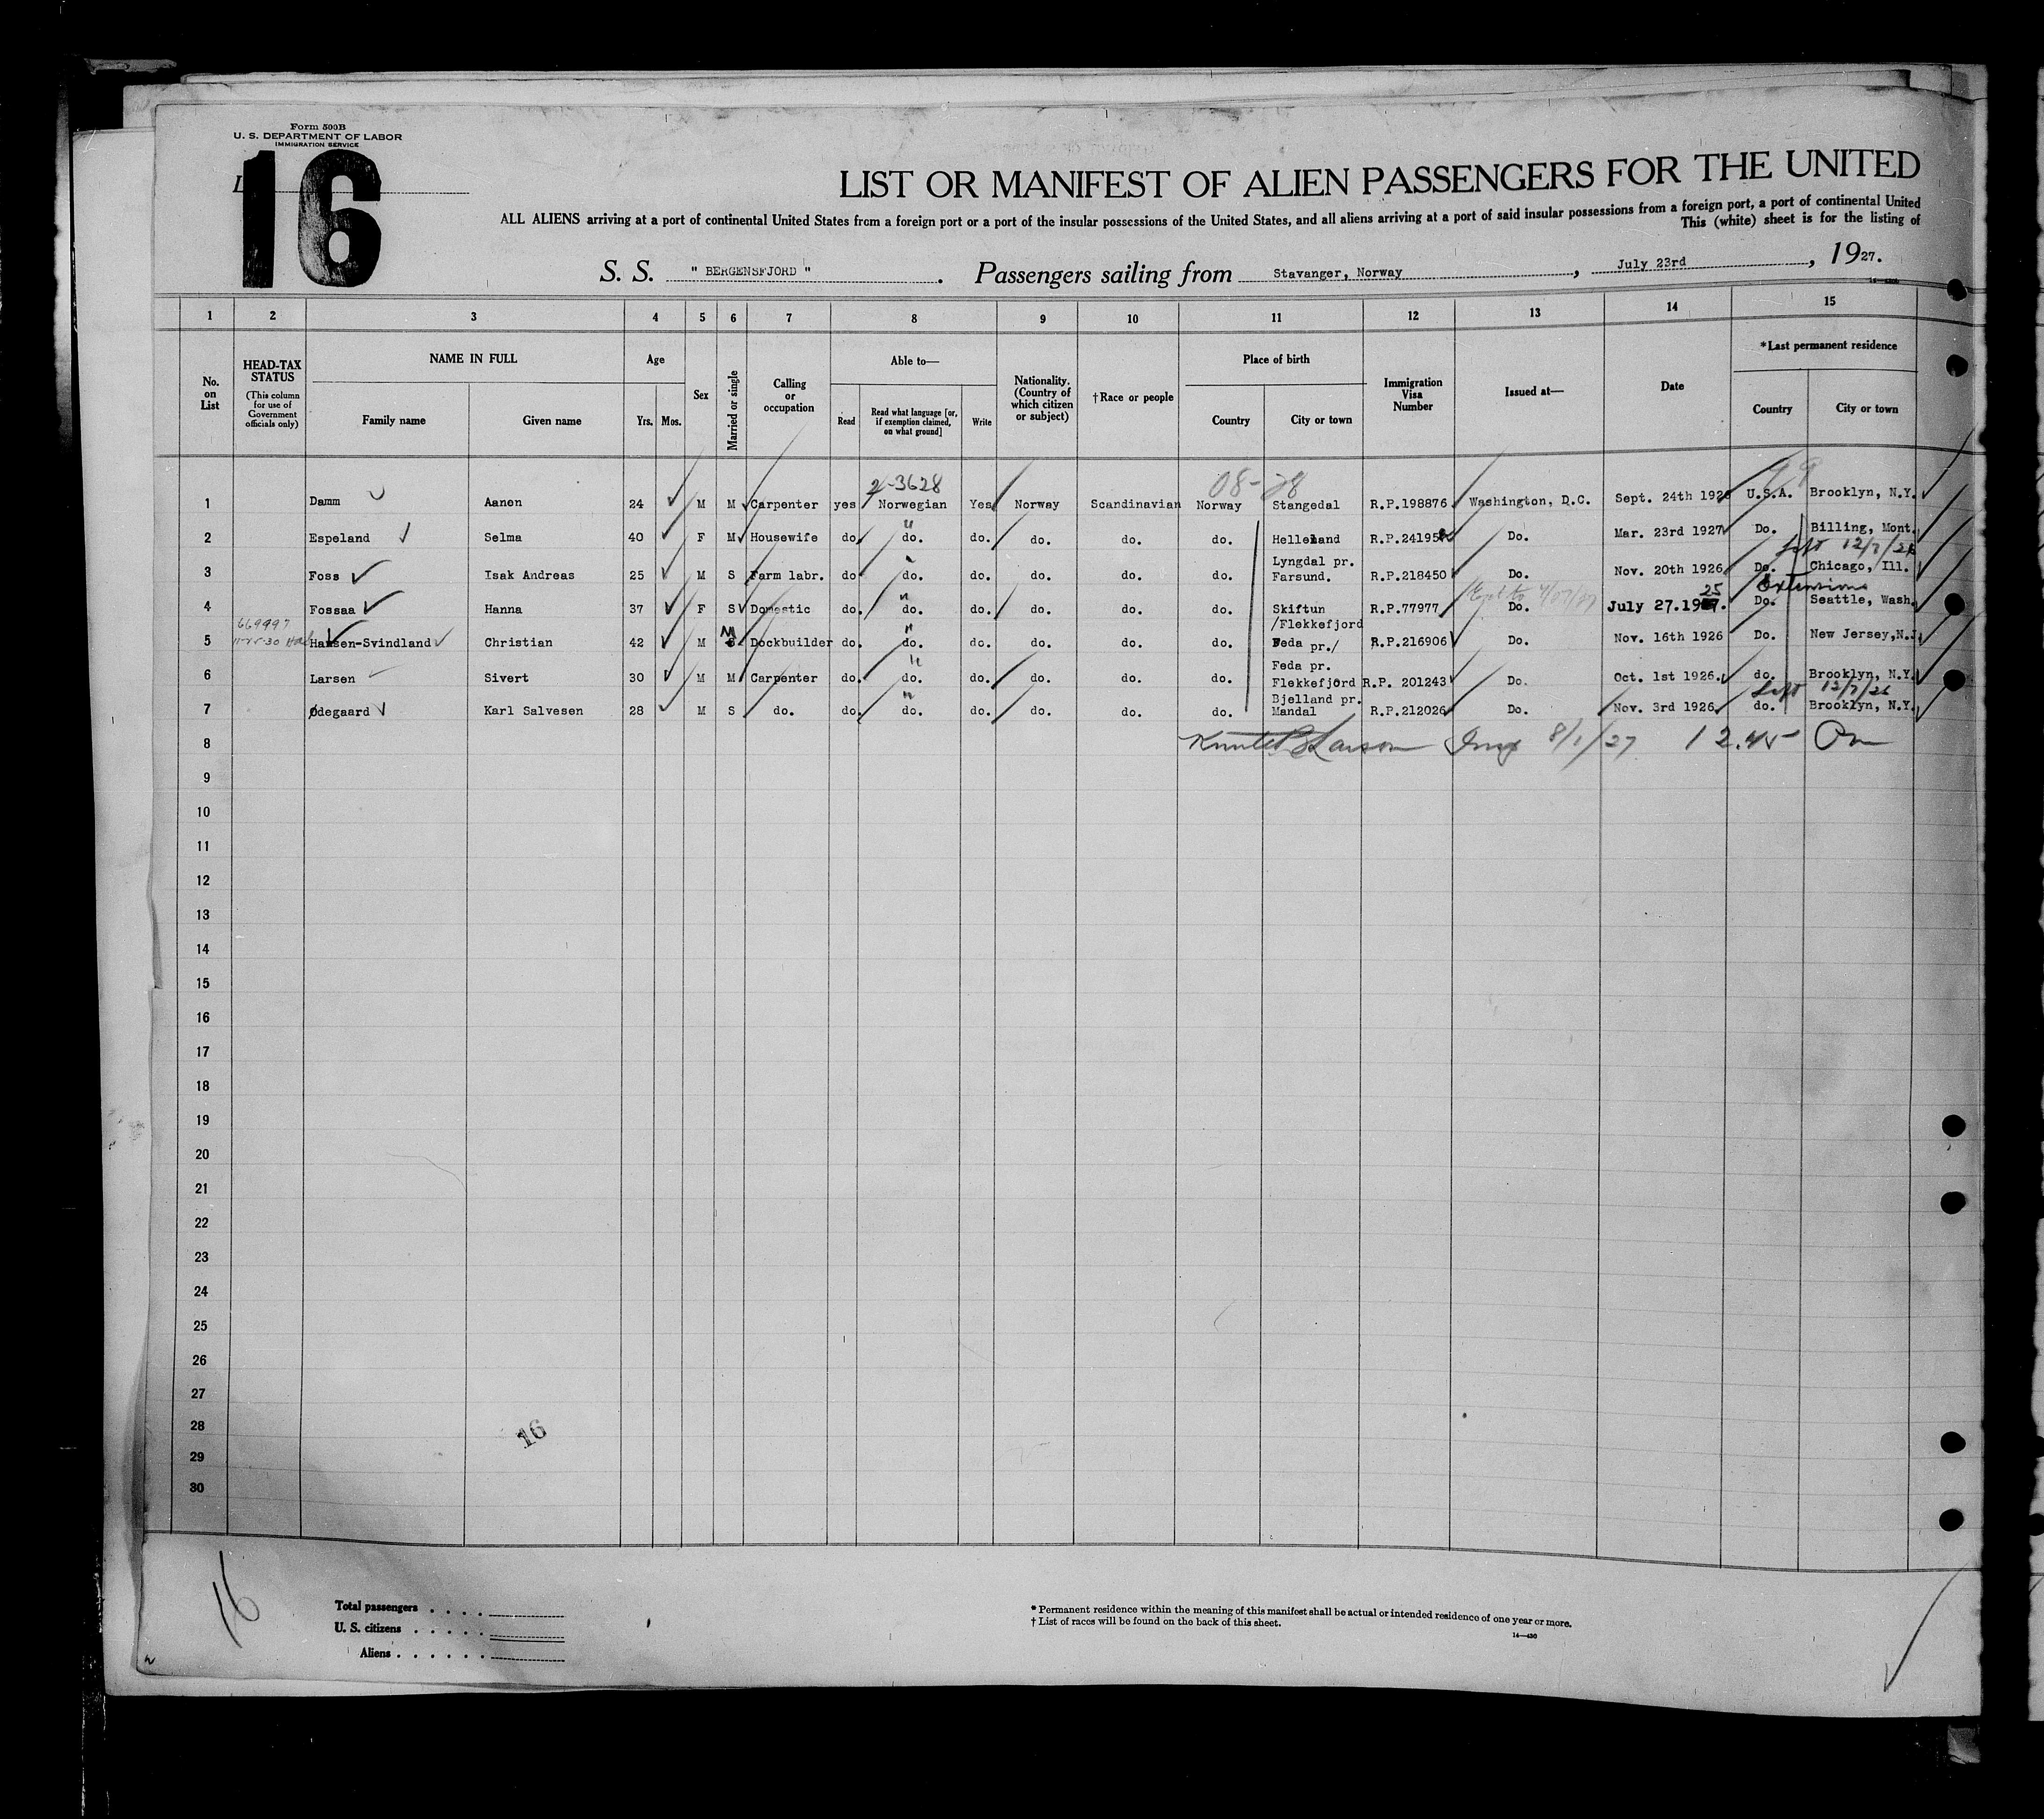 Form 500B
U. S. DEPARTMENT OF LABOR
IMMIGRATION SERVICE
16
LIST OR MANIFEST OF ALIEN PASSENGERS FOR THE UNITED
ALL ALIENS arriving at a port of continental United States from a foreign port or a port of the insular possessions of the United States, and all aliens arriving at a port of said insular possessions from a foreign port, a port of continental United
This (white) sheet is for the listing of
S. S. " BERGENSFJORD ". Passengers sailing from Stavanger, Norway, July 23rd, 1927.
1 2 3 4 5 6 7 8 9 10 11 12 13 14 15
No. on List
HEAD-TAX STATUS
(This column for use of Government officials only)
NAME IN FULL
Family name Given name
Age
Yrs. Mos.
Sex
Married or single
Calling or occupation
Able to—
Read
Read what language [or, if exemption claimed, on what ground]
Write
Nationality. (Country of which citizen or subject)
†Race or people
Place of birth
Country City or town
Immigration Visa Number
Issued at—
Date
*Last permanent residence
Country City or town
2-3628
1 Damm Aanen 24 M M Carpenter yes Norwegian Yes Norway Scandinavian Norway Stangedal R.P.198876 Washington, D.C. Sept. 24th 1926 U.S.A. Brooklyn, N.Y.
2 Espeland Selma 40 F M Housewife do. " do. do. do. do. do. Helleland Do. Mar. 23rd 1927 Do. Billing, Mont.
3 Foss Isak Andreas 25 M S Farm labr. do do. do. do. do. do. Lyngdal pr. Farsund. R.P.218450 Do. Nov. 20th 1926 Do. Chicago, Ill.
Extension
4 Fossaa Hanna 37 F S Domestic do. " do. do. do. do. do. Skiftun R.P.77977 Do. July 27.19 25 Do. Seattle, Wash.
669997
5 Hansen-Svindland Christian 42 M M Dockbuilder do. " do. do. do. do. do. /Flekkefjord Feda pr./ R.P.216906 Do. Nov. 16th 1926 Do. New Jersey,N.J.
6 Larsen Sivert 30 M M Carpenter do. " do. do. do. do. do. Feda pr. Flekkefjord R.P. 201243 Do. Oct. 1st 1926. do. Brooklyn, N.Y.
7 Ødegaard Karl Salvesen 28 M S do. do. " do. do. do. do. do. Bjelland pr. Mandal R.P.212026 Do. Nov. 3rd 1926 do. Brooklyn, N.Y.
8 Larson 8/1/27 12.45 Pm
9
10
11
12
13
14
15
16
17
18
19
20
21
22
23
24
25
26
27
28
29
30
16
16
Total passengers
U. S. citizens
Aliens
* Permanent residence within the meaning of this manifest shall be actual or intended residence of one year or more.
† List of races will be found on the back of this sheet.
14—430